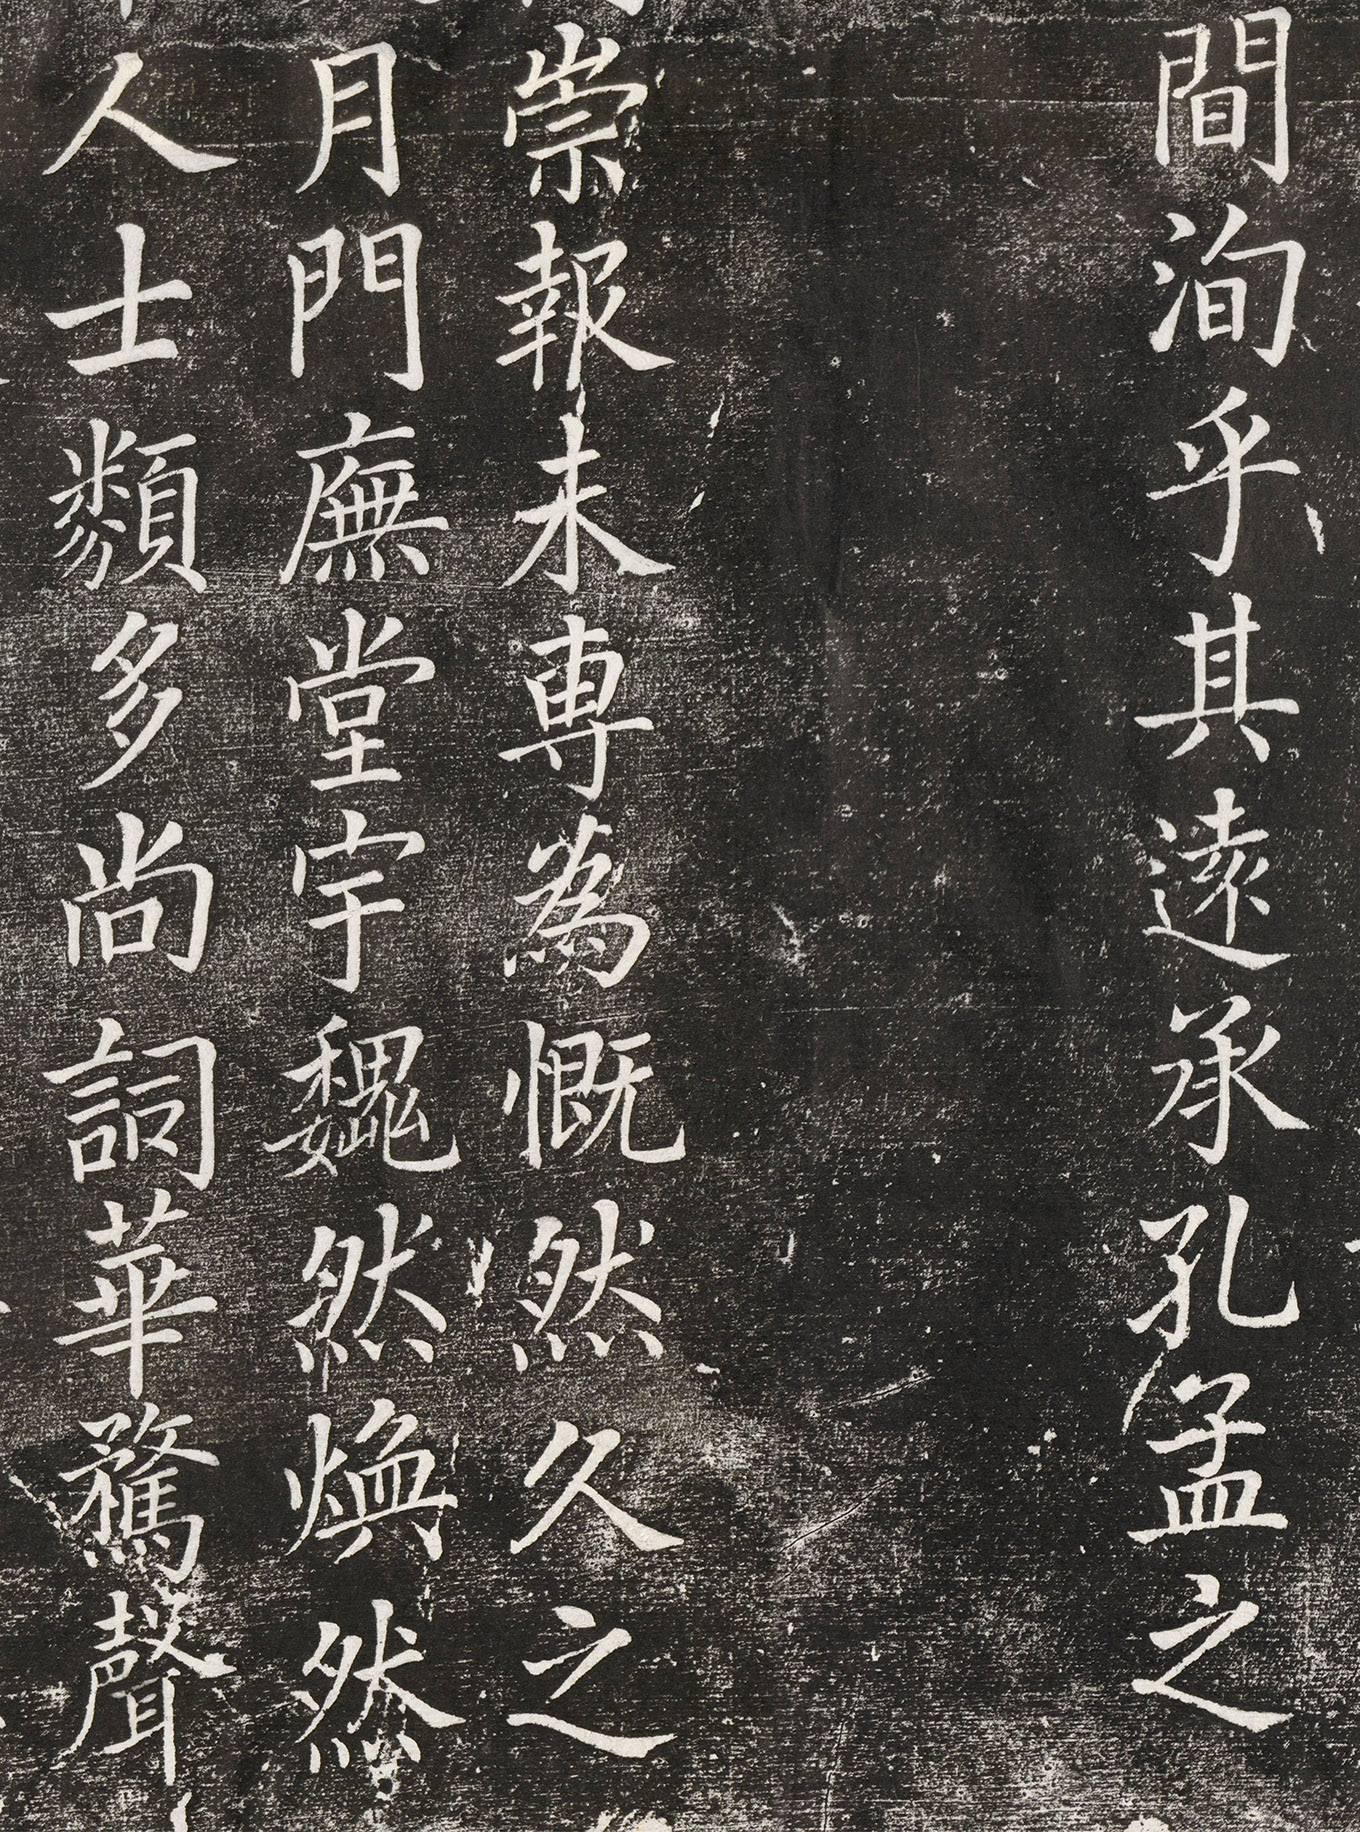 間洵乎其遠承孔孟之
崇報未專為慨然久之
月門廡堂宇巍然煥然
人士類多尚詞華騖聲